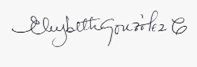 Elizabeth González C